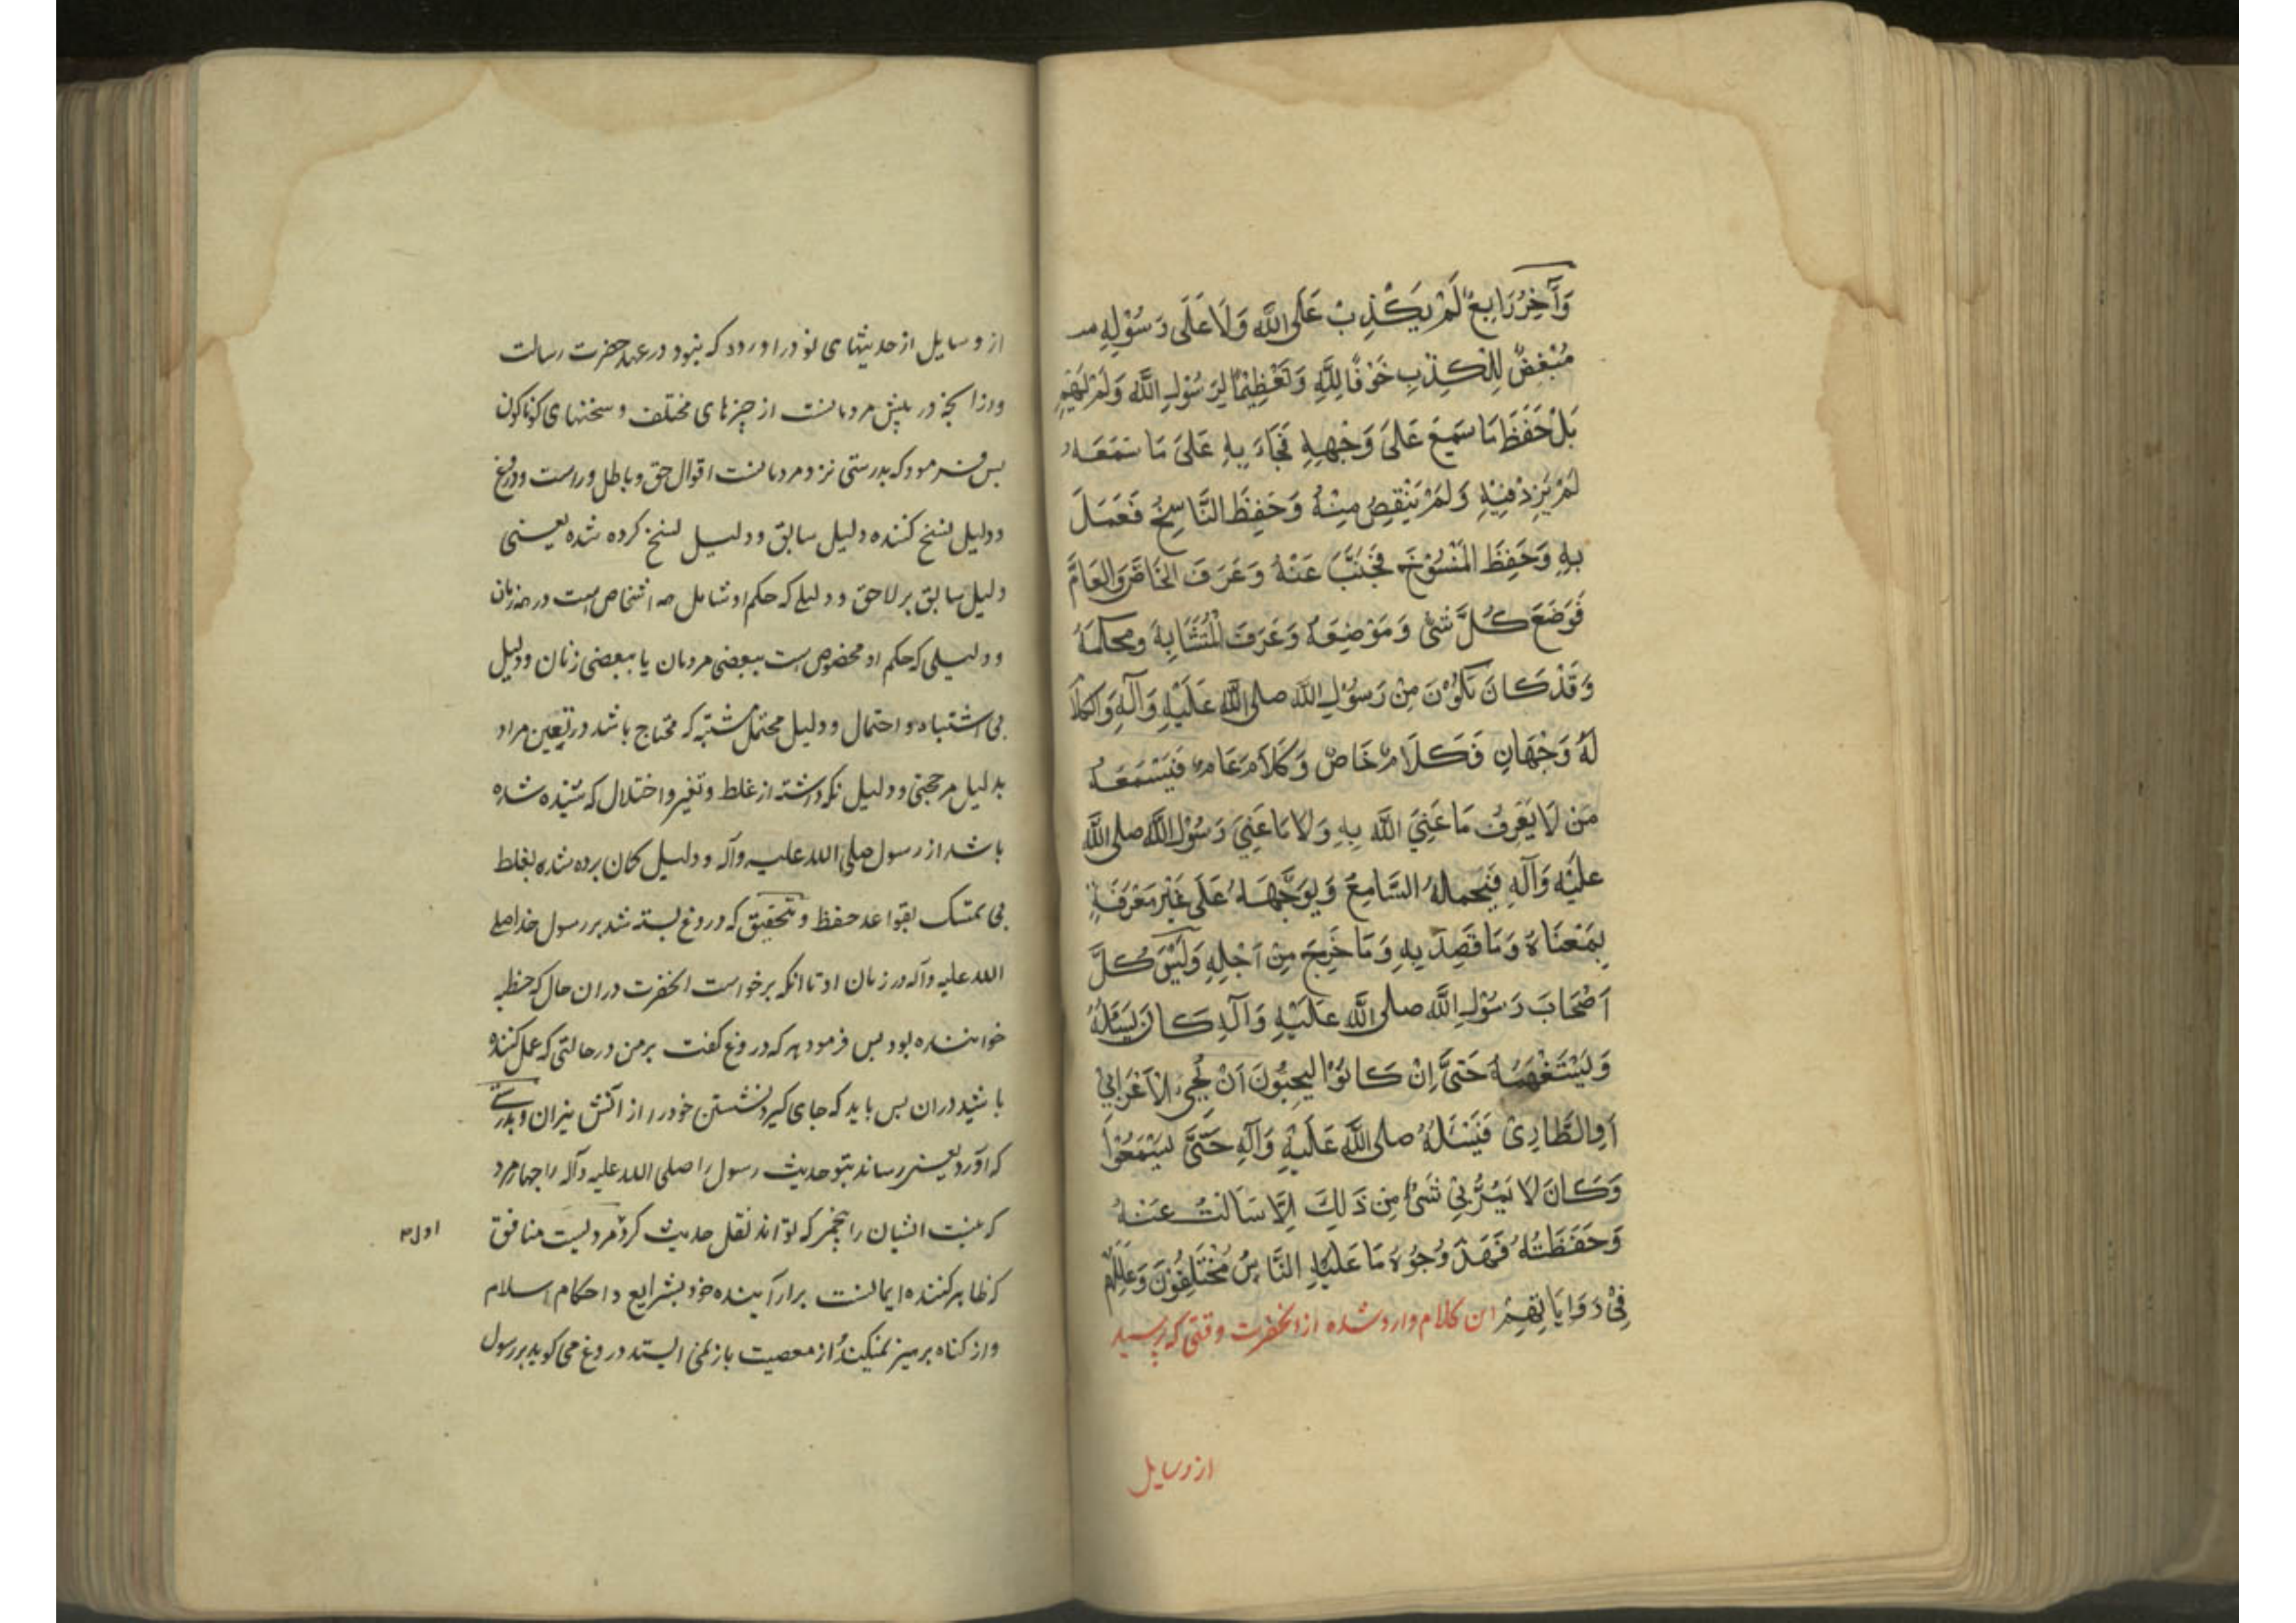 وَآخِرُ رَابِعٌ لَمْ يَكْذِبْ عَلَى اللَّهِ وَلَا عَلَى رَسُوْلِهِ
مُبْغِضٌ لِلْكِذْبِ خَوْفًا لِلَّهِ وَتَعْظِيْمًا لِرَسُوْلِ اللَّهِ وَلَمْ يَهِمْ
بَلْ حَفَظَ مَا سَمِعَ عَلَى وَجْهِهِ فَجَاءَ بِهِ عَلَى مَا سَمَعَهُ
لَمْ يَزِدْ فِيْهِ وَلَمْ يَنْقِصْ مِنْهُ وَحَفِظَ النَّاسِخَ فَعَمَلَ
بِهِ وَحَفِظَ الْمَنْسُوْخَ فَجَنَّبَ عَنْهُ وَعَرَفَ الخَاصَّ وَالعَامَّ
فَوَضَعَ كُلَّ شَیْ وَمَوْضِعَهُ وَعَرَفَ الْمُتَشَابِهَ ومحكمَهُ
وَقَدْ كَانَ يَكُوْنَ مِنْ رَسُوْلِ اللَّه صلی اللَّه عَلَيْهِ وَآلِهِ وَالكَلَامُ
لَهُ وَجْهَانِ فَكَلَامٌ خَاصٌ وَكَلَامٌ عَامٌ فَيَسْمَعَهُ
مَنْ لَا يَعْرِفُ مَا عَنِيَ اللَّه بِهِ وَلَا مَا عَنِيَ رَسُوْلُ اللَّه صلی اللَّه
عَلَيْهِ وَآلِهِ فَيَحملهُ السَّامِعَ وَيُوَجِّهَهُ عَلَى غَيْرِ مَعْرَفَةٍ
بِمَعْنَاهُ وَمَا قَصِدَ بِهِ وَمَا خَرَجَ مِنْ اَجْلِهِ وَلَيْسَ كُلَّ
اَصْحَابَ رَسُوْلِ اللَّه صلی اللَّه عَلَيْهِ وَآلِهِ كَانَ يَسْئَلُهُ
وَيَسْتَفْهِمُهُ حَتَّى اِنْ كَانُوْا لَيحِبُّونَ اَنْ يَجِیْ الْاَعْرَابِيْ
اَوِ الطَّارِیْ فَيَسْئَلُهُ صلی اللَّه عَلَيْهِ وَآلِهِ حَتَّى يَسْمَعُوْا
وَكَانَ لَا يَمُرُّ بِيْ شَیْ مِنْ ذَلِكَ اِلَّا سَاَلْتُ عَنْهُ
وَحَفَظْتُهُ فَهَذَ وُجُوْهُ مَا عَلَيْهِ النَّاسُ مُخْتَلِفُوْنَ وَعِلَلِهِمْ
فِيْ رَوَايَاتِهِمْ این کلام وارد شده از انحضرت وقتی که پرسید
از وسایل
از وسایل از حدیثهای نو دراورده که نبود در عهد حضرت رسالت
واز انچه در پیش مردمانست از چیزهای مختلف و سخنهای کوناکون
پس فرمود که بدرستی نزد مردمانست اقوال حق و باطل و راست و دروغ
و دلیل نسخ کننده دلیل سابق و دلیل نسخ کرده شده یعنی
دلیل سابق بر لاحق و دلیلی که حکم او شامل اشخاص است در هر زمان
و دلیلی که حکم او مخصوص است ببعضی مردمان یا ببعضی زمان و دلیل
بی اشتباه و احتمال و دلیل محتمل مشتبه که محتاج باشد در تعیین مراد
بدلیل مرجحی و دلیل نکه داشته از غلط و تغیر و اختلال که شنیده شده
باشد از رسول صلی الله علیه وآله و دلیل کمان برده شده بغلط
بی تمسک بقواعد حفظ و بتحقیق که دروغ بسته شد بر رسول خدا صلی
الله علیه وآله در زمان او تا انکه برخواست انحضرت در ان حال که خطبه
خواننده بود پس فرمود هر که دروغ گفت بر من در حالتی که عمل کننده
باشید در ان پس باید که جای گیرد نشستن خود را از آتش نیران و بدرستی
که آورد یعنی رساند بتو حدیث رسول را صلی الله علیه وآله را چهار مرد
که نیست ایشان را پنجم که تواند نقل حدیث کرد مردیست منافق
که ظاهر کننده ایمانست برآراینده خود بشرایع و احکام اسلام
و از کناه پرهیز نمیکند و از معصیت باز نمی ایستد دروغ می کوید بر رسول
اول م